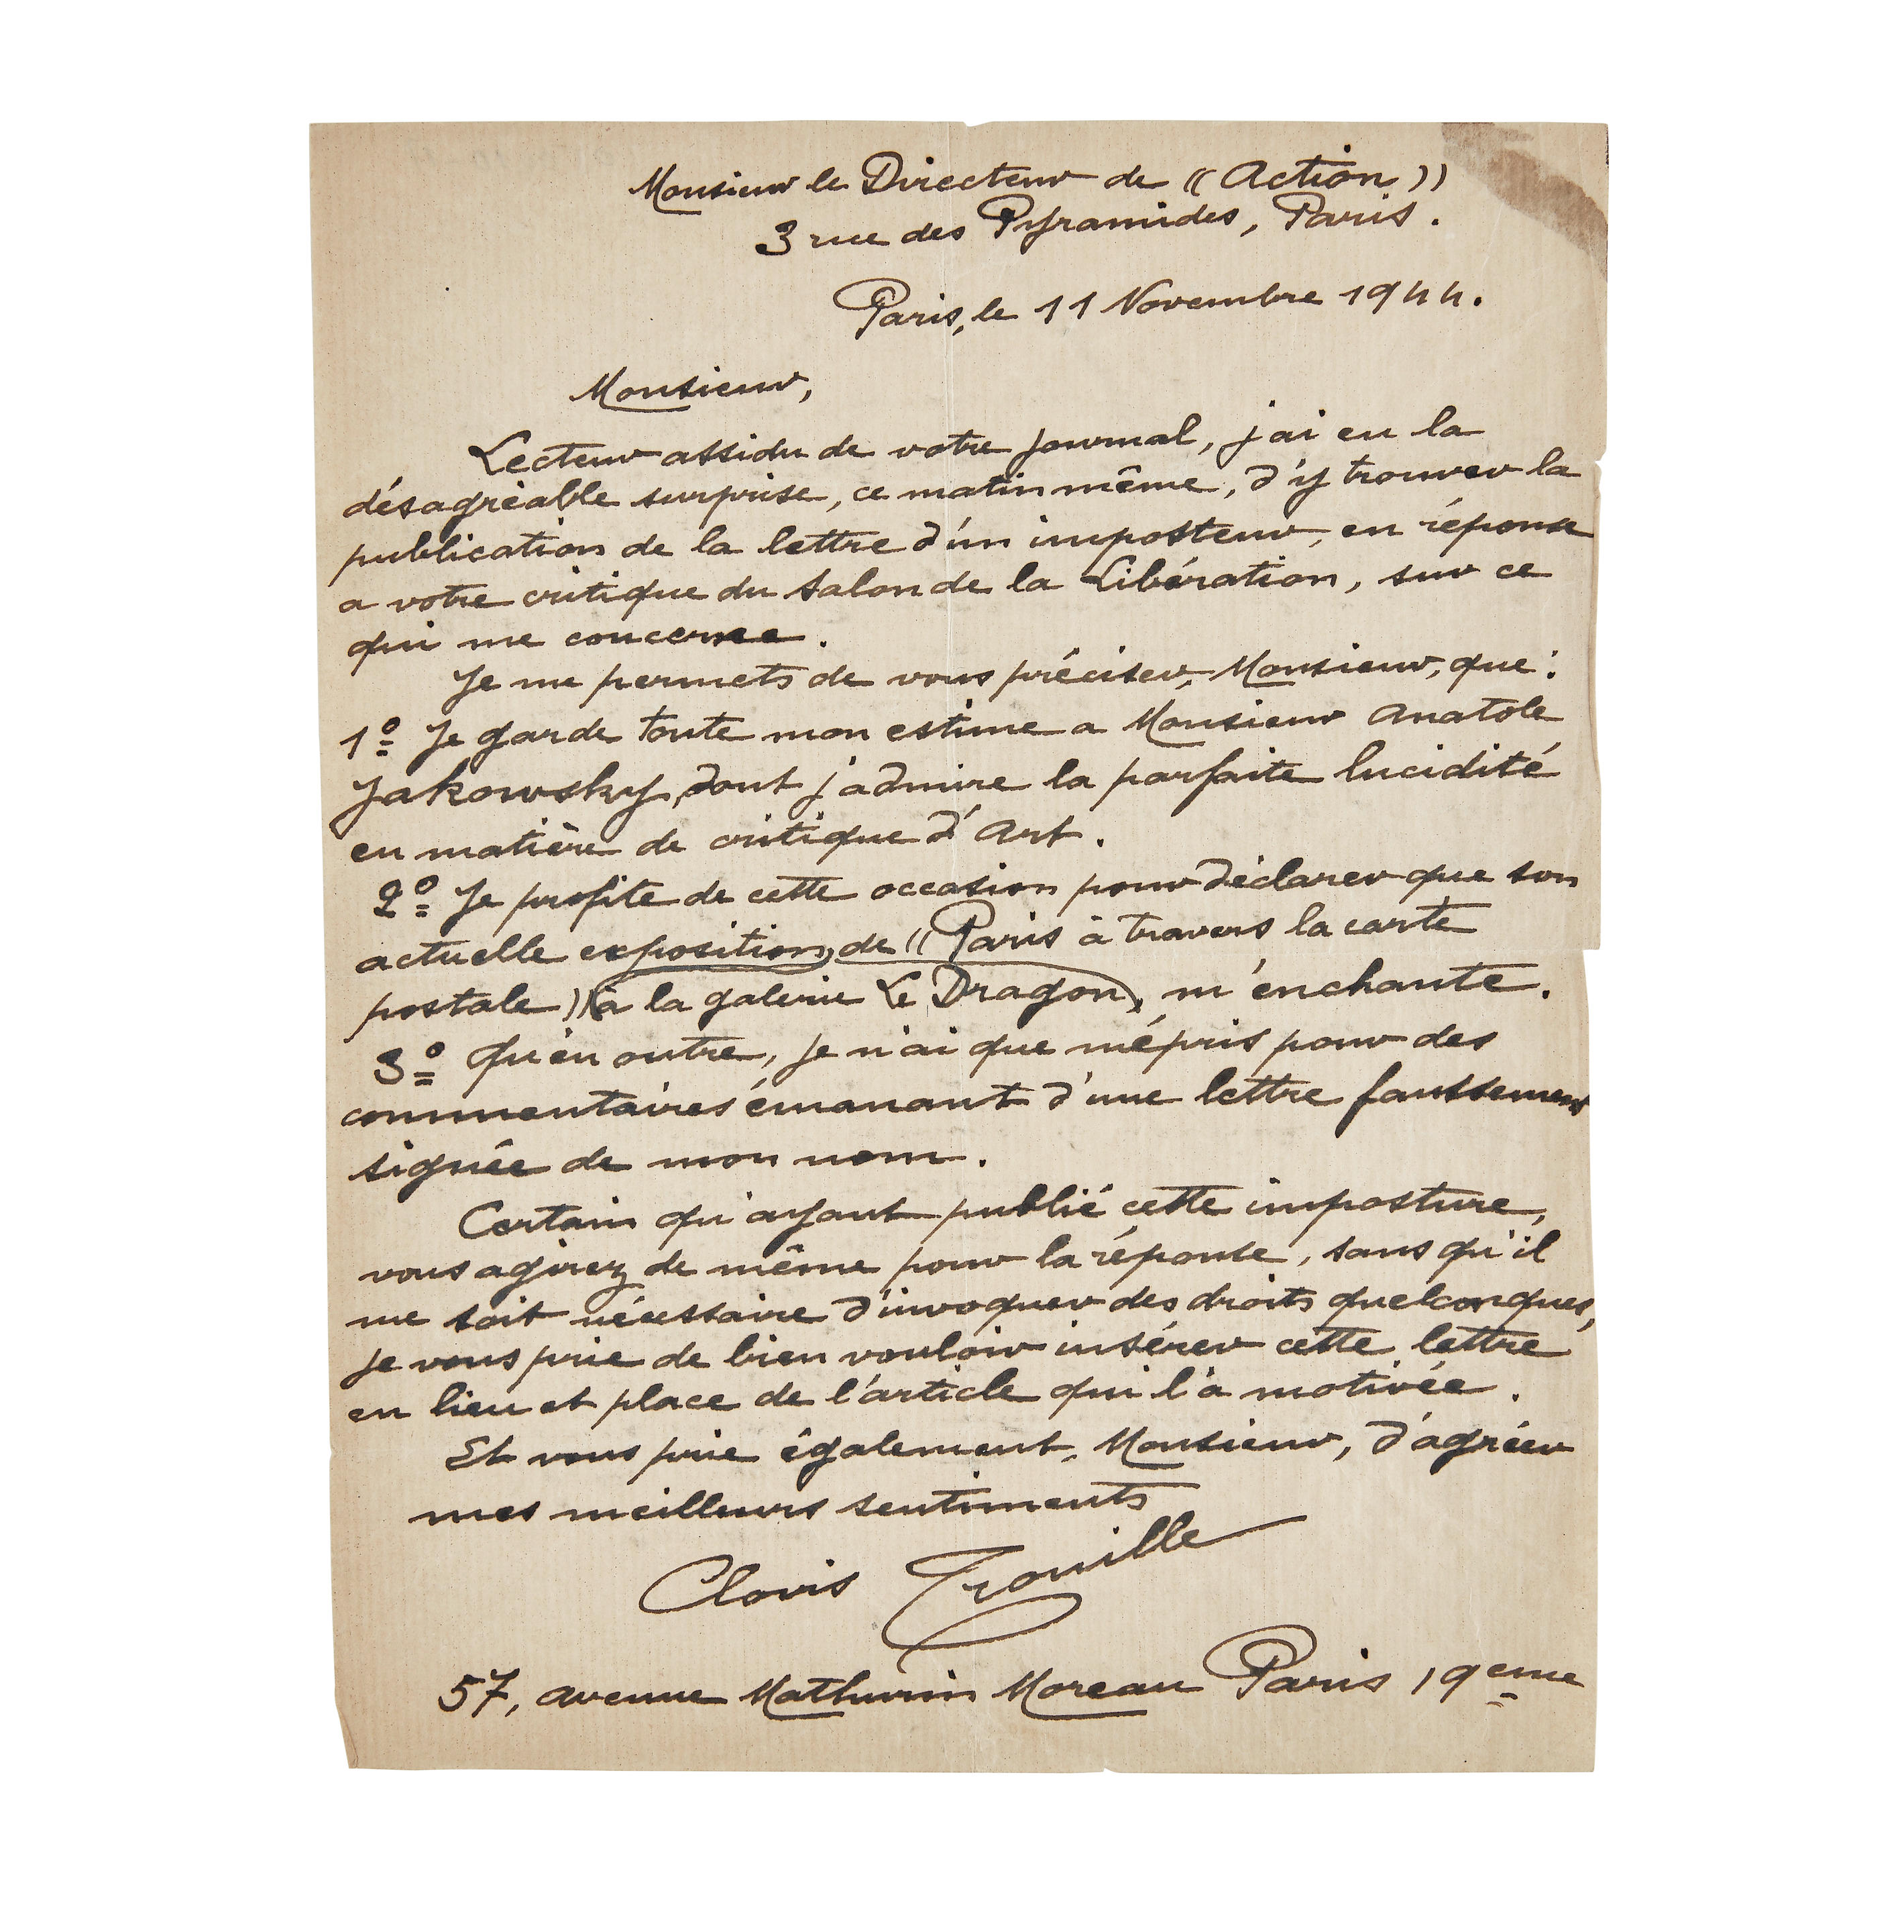 Monsieur le Directeur de (( Action ))
3 rue des Pyramides, Paris.
Paris, le 11 Novembre 1944.
Monsieur,
Lecteur assidu de votre journal, j'ai eu la
désagréable surprise, ce matin même, d'y trouver la
publication de la lettre d'un imposteur, en réponse
a votre critique du Salon de la Libération, sur ce
qui me concerne.
Je me permets de vous préciser, Monsieur, que :
1º Je garde toute mon estime a Monsieur Anatole
Jakowsky, dont j'admire la parfaite lucidité
en matière de critique d'Art.
2º Je profite de cette occasion pour déclarer que son
actuelle exposition, de (( Paris à travers la carte
postale )) (à la galerie Le Dragon), m'enchante.
3º Qu'en outre, je n'ai que mépris pour des
commentaires émanant d'une lettre faussement
signée de mon nom.
Certain qu'ayant publié cette imposture,
vous agirez de même pour la réponse, sans qu'il
me soit nécessaire d'invoquer des droits quelconques,
je vous prie de bien vouloir insérer cette lettre
en lieu et place de l'article qui l'a motivée.
Et vous prie également, Monsieur, d'agréer
mes meilleurs sentiments
Clovis Trouille
57, avenue Mathurin Moreau Paris 19eme